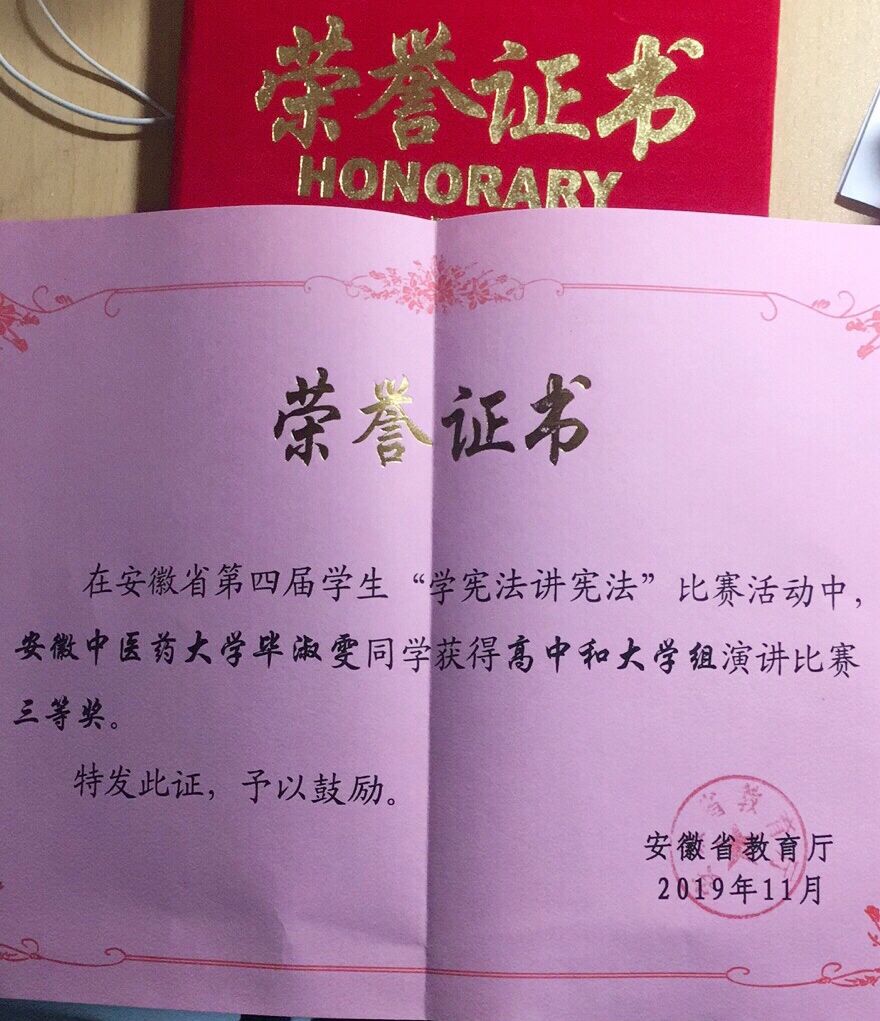 荣誉证书
HONORARY
荣誉证书
在安徽省第四届学生“学宪法讲宪法”比赛活动中，
安徽中医药大学毕淑雯同学获得高中和大学组演讲比赛
三等奖。
特发此证，予以鼓励。
安徽省教育厅
2019年11月